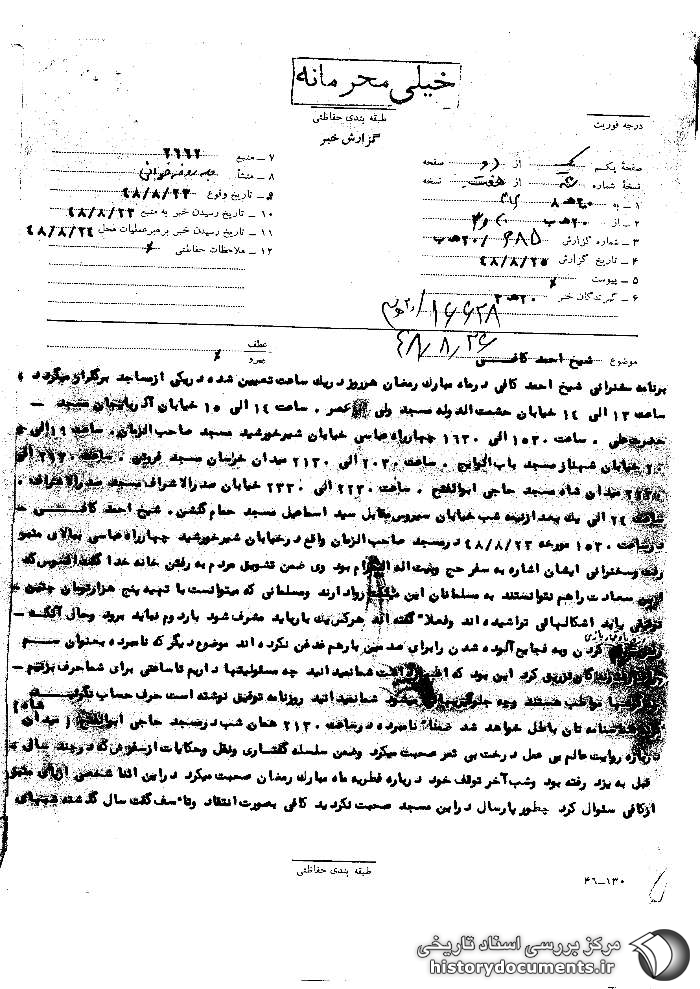 خیلی محرمانه
طبقه بندی حفاظتی
گزارش خبر
درجه فوریت
صفحهٔ یکم یک از دو صفحه
نسخهٔ شماره از هفت نسخه
۱ ـ به ۲۰ هـ ۸
۲ ـ از ۲۰ هـ ب
۳ ـ شماره گزارش ۶۸۵ /۲۰ هـ ب
۴ ـ تاریخ گزارش ۴۸/۸/۲۵
۵ ـ پیوست
۶ ـ گیرندگان خبر ۲۰ هـ ۳
۷ ـ منبع ۲۶۶۲
۸ ـ منشأ
۹ ـ تاریخ وقوع ۴۸/۸/۲۳
۱۰ ـ تاریخ رسیدن خبر به منبع ۴۸/۸/۲۳
۱۱ ـ تاریخ رسیدن خبر برهبر عملیات محل ۴۸/۸/۲۴
۱۲ ـ ملاحظات حفاظتی
۱۶۶۲۸
۴۸/۸/۲۶
موضوع شیخ احمد کافی
عطف
پیرو
برنامه سخنرانی شیخ احمد کافی درماه مبارک رمضان هرروز دریک ساعت تعیین شده دریکی ازمساجد برگزار میگردد
ساعت ۱۳ الی ۱۴ خیابان حشمت الدوله مسجد ولی عصر . ساعت ۱۴ الی ۱۵ خیابان آذربایجان مسجد
حضرت علی . ساعت ۱۵۳۰ الی ۱۶۳۰ چهارراه عباسی خیابان شیرخورشید مسجد صاحب الزمان. ساعت ۱۹ الی
۲۰ خیابان شهباز مسجد باب الحوایج . ساعت ۲۰۳۰ الی ۲۱۳۰ میدان خراسان مسجد قزوینی . ساعت ۲۱۳۰ الی
میدان شاه مسجد حاجی ابوالفتح . ساعت ۲۲۳۰ الی ۲۳۳۰ خیابان صدرالاشراف مسجد صدرالاشراف .
ساعت ۲۴ الی یک بعد ازنیمه شب خیابان سیروس مقابل سید اسماعیل مسجد حمام گلشن . شیخ احمد کافی
درساعت ۱۵۳۰ مورخه ۴۸/۸/۲۳ درمسجد صاحب الزمان واقع درخیابان شیرخورشید چهارراه عباسی ببالای منبر
رفت وسخنرانی ایشان اشاره به سفر حج وبیت اله الحرام بود وی ضمن تشویق مردم به رفتن خانه خدا گفت افسوس که
این سعادت راهم نتوانستند به مسلمانان این روادارند ومسلمانی که میتوانست با تهیه پنج هزارتومان چنین
توفیقی بیابد اشکالهائی تراشیده اند وفعلا" گفته اند هرکس یک باربابد مشرف شود باردوم نباید برود وحال آنکه
قماربازی
کردن وبه فجایع آلوده شدن رابرای صدمین بارهم قدغن نکرده اند موضوع دیگر که نامبرده بعنوان
کرد این بود که شمانمیدانید چه مسئولیتها داریم تاساعتی برای شماحرف بزنیم
مواظب هستند وجه جلوگیریهائی میشود شمانمیدانید روزنامه توفیق نوشته است حرف حساب نگو
شناسنامه تان باطل خواهد شد ضمنا" نامبرده درساعت ۲۱۳۰ همان شب درمسجد حاجی ابوالفتح میدان شاه
درباره روایت عالم بی عمل درخت بی ثمر صحبت میکرد وضمن سلسله گفتاری ونقل وحکایات ازسفرش که درچند سال
قبل به یزد رفته بود وشب آخر توقف خود درباره فطریه ماه مبارک رمضان صحبت میکرد دراین اثنا شخصی ازپای منبر
ازکافی سئوال کرد چطور پارسال دراین مسجد صحبت نکردید کافی بصورت انتقاد وتأسف گفت سال گذشته شبهای
طبقه بندی حفاظتی
۴۶ـ۱۳۰
مرکز بررسی اسناد تاریخی
historydocuments.ir